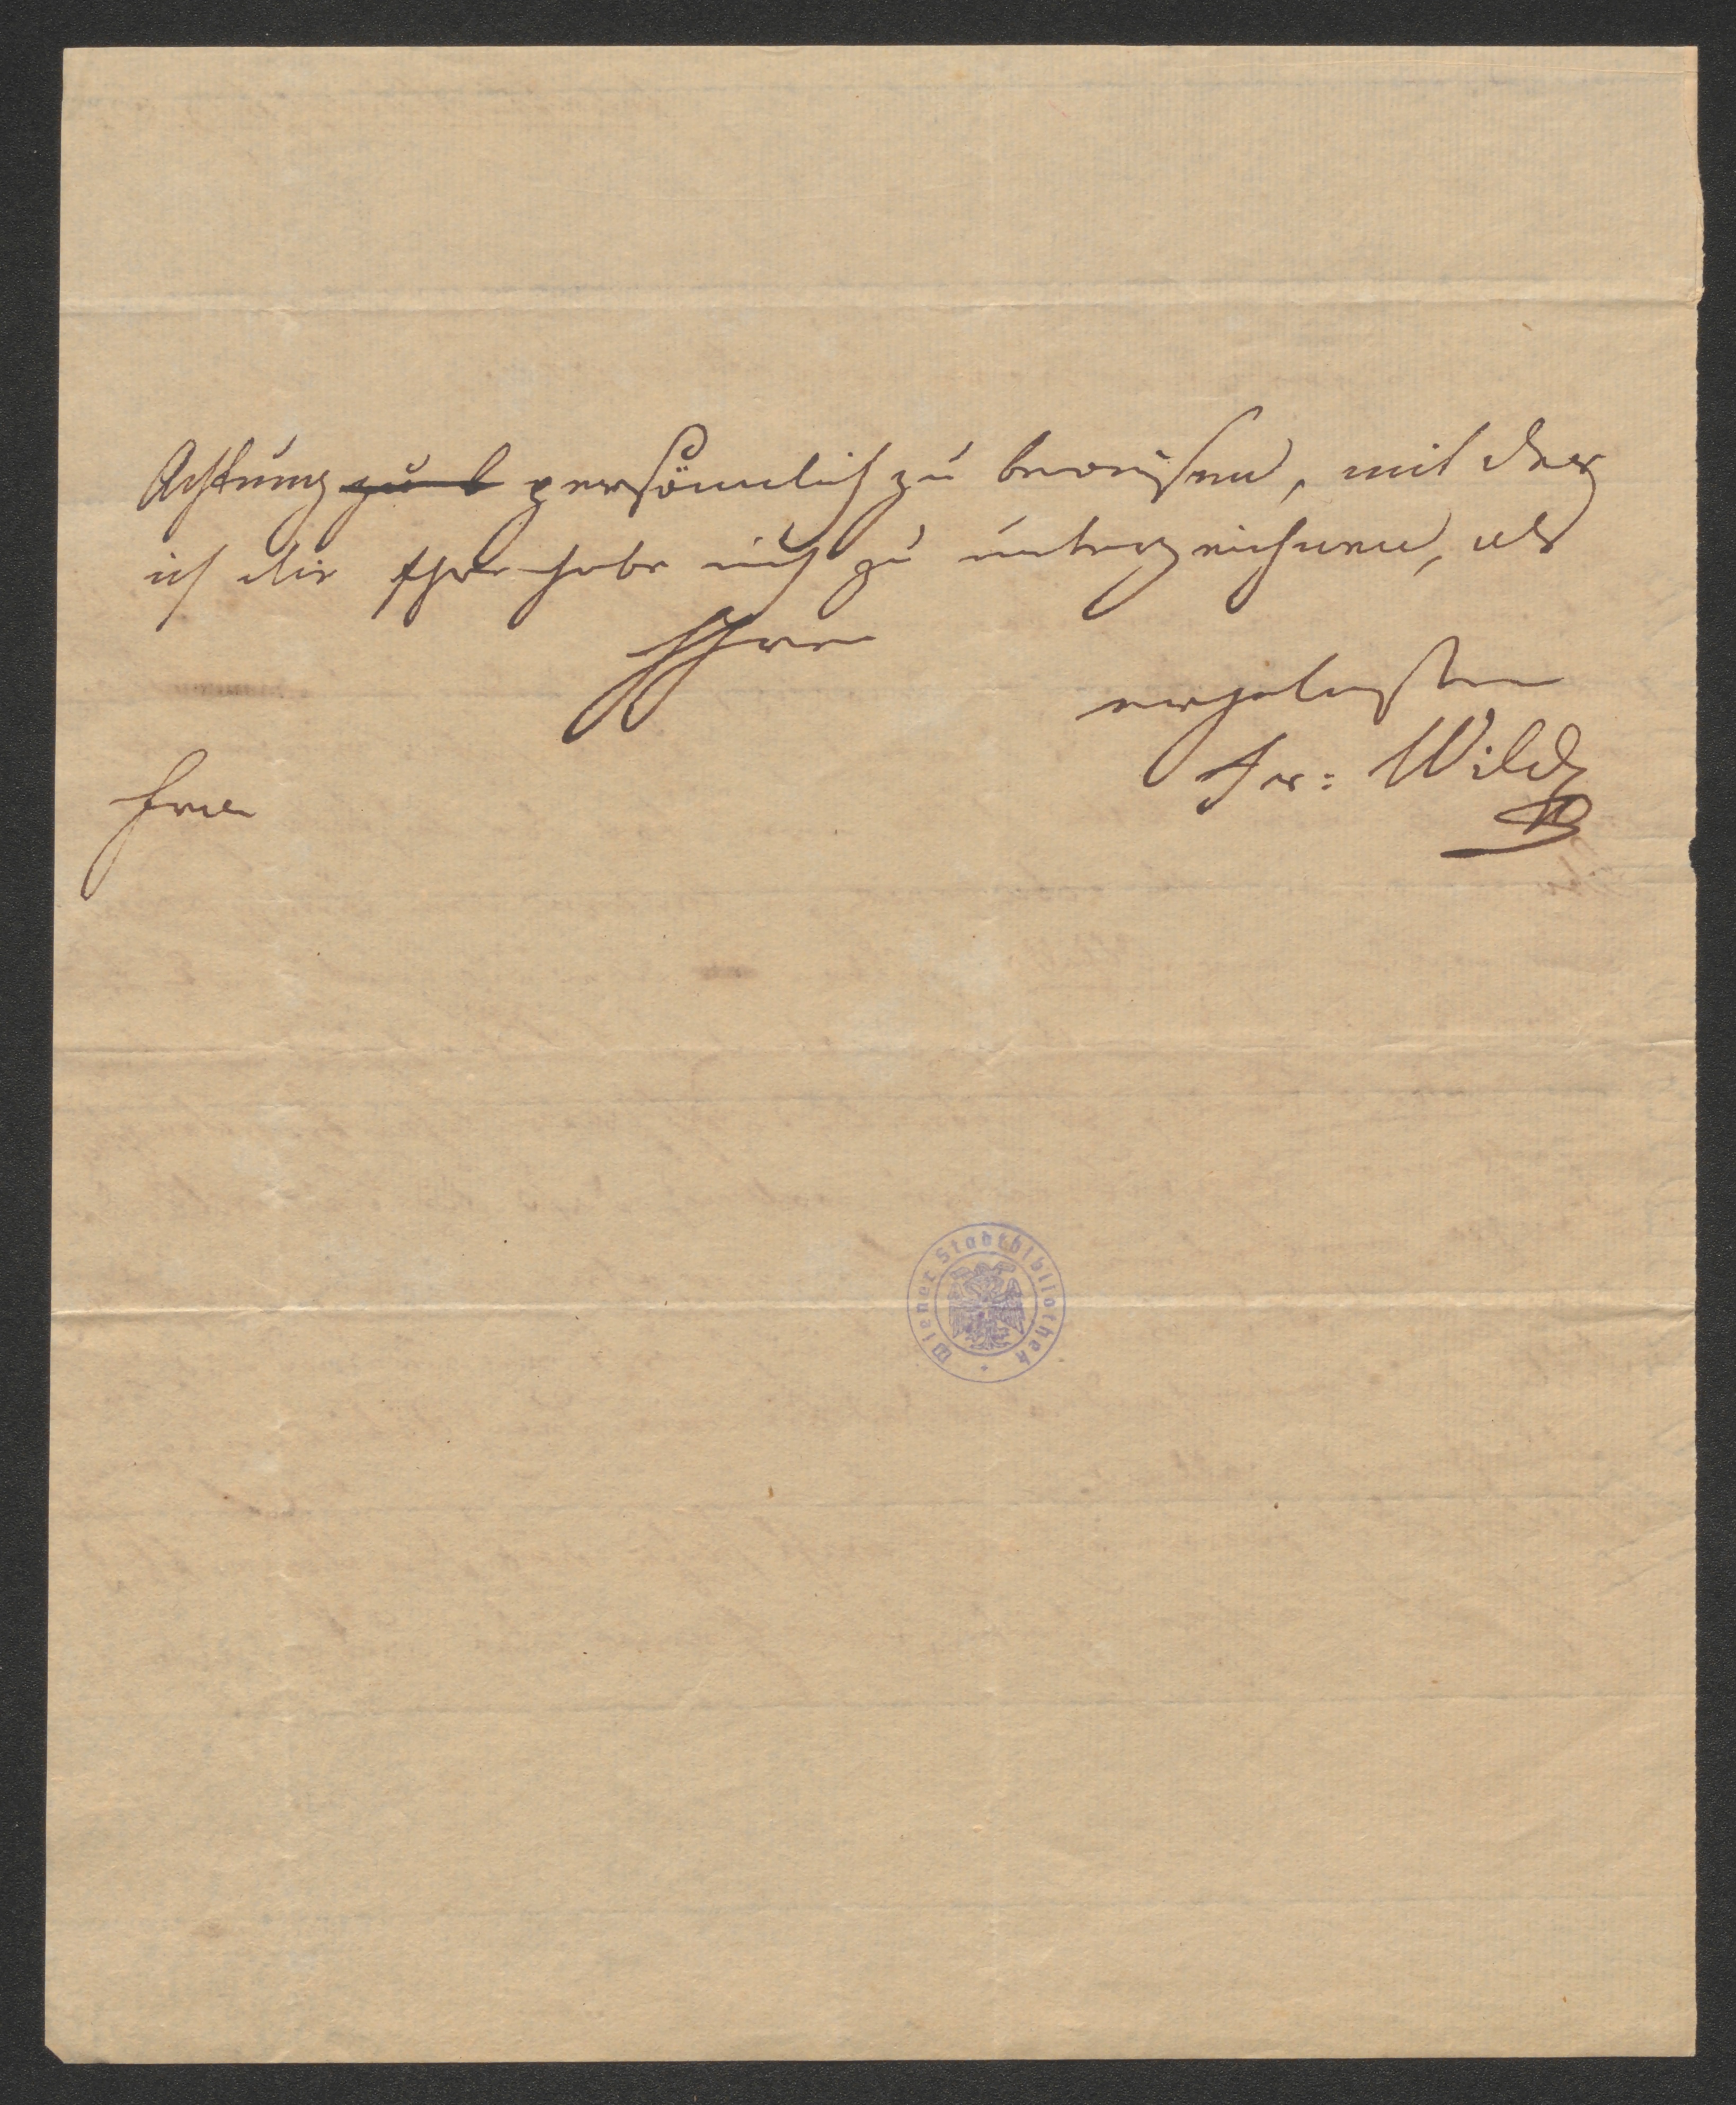 Achtung zu b persönnlich zu beweisen, mit der
ich die Ehre habe mich zu unterzeichnen, als
Ihren
ergebensten
Frz: Wild
Wiener Stadtbibliothek